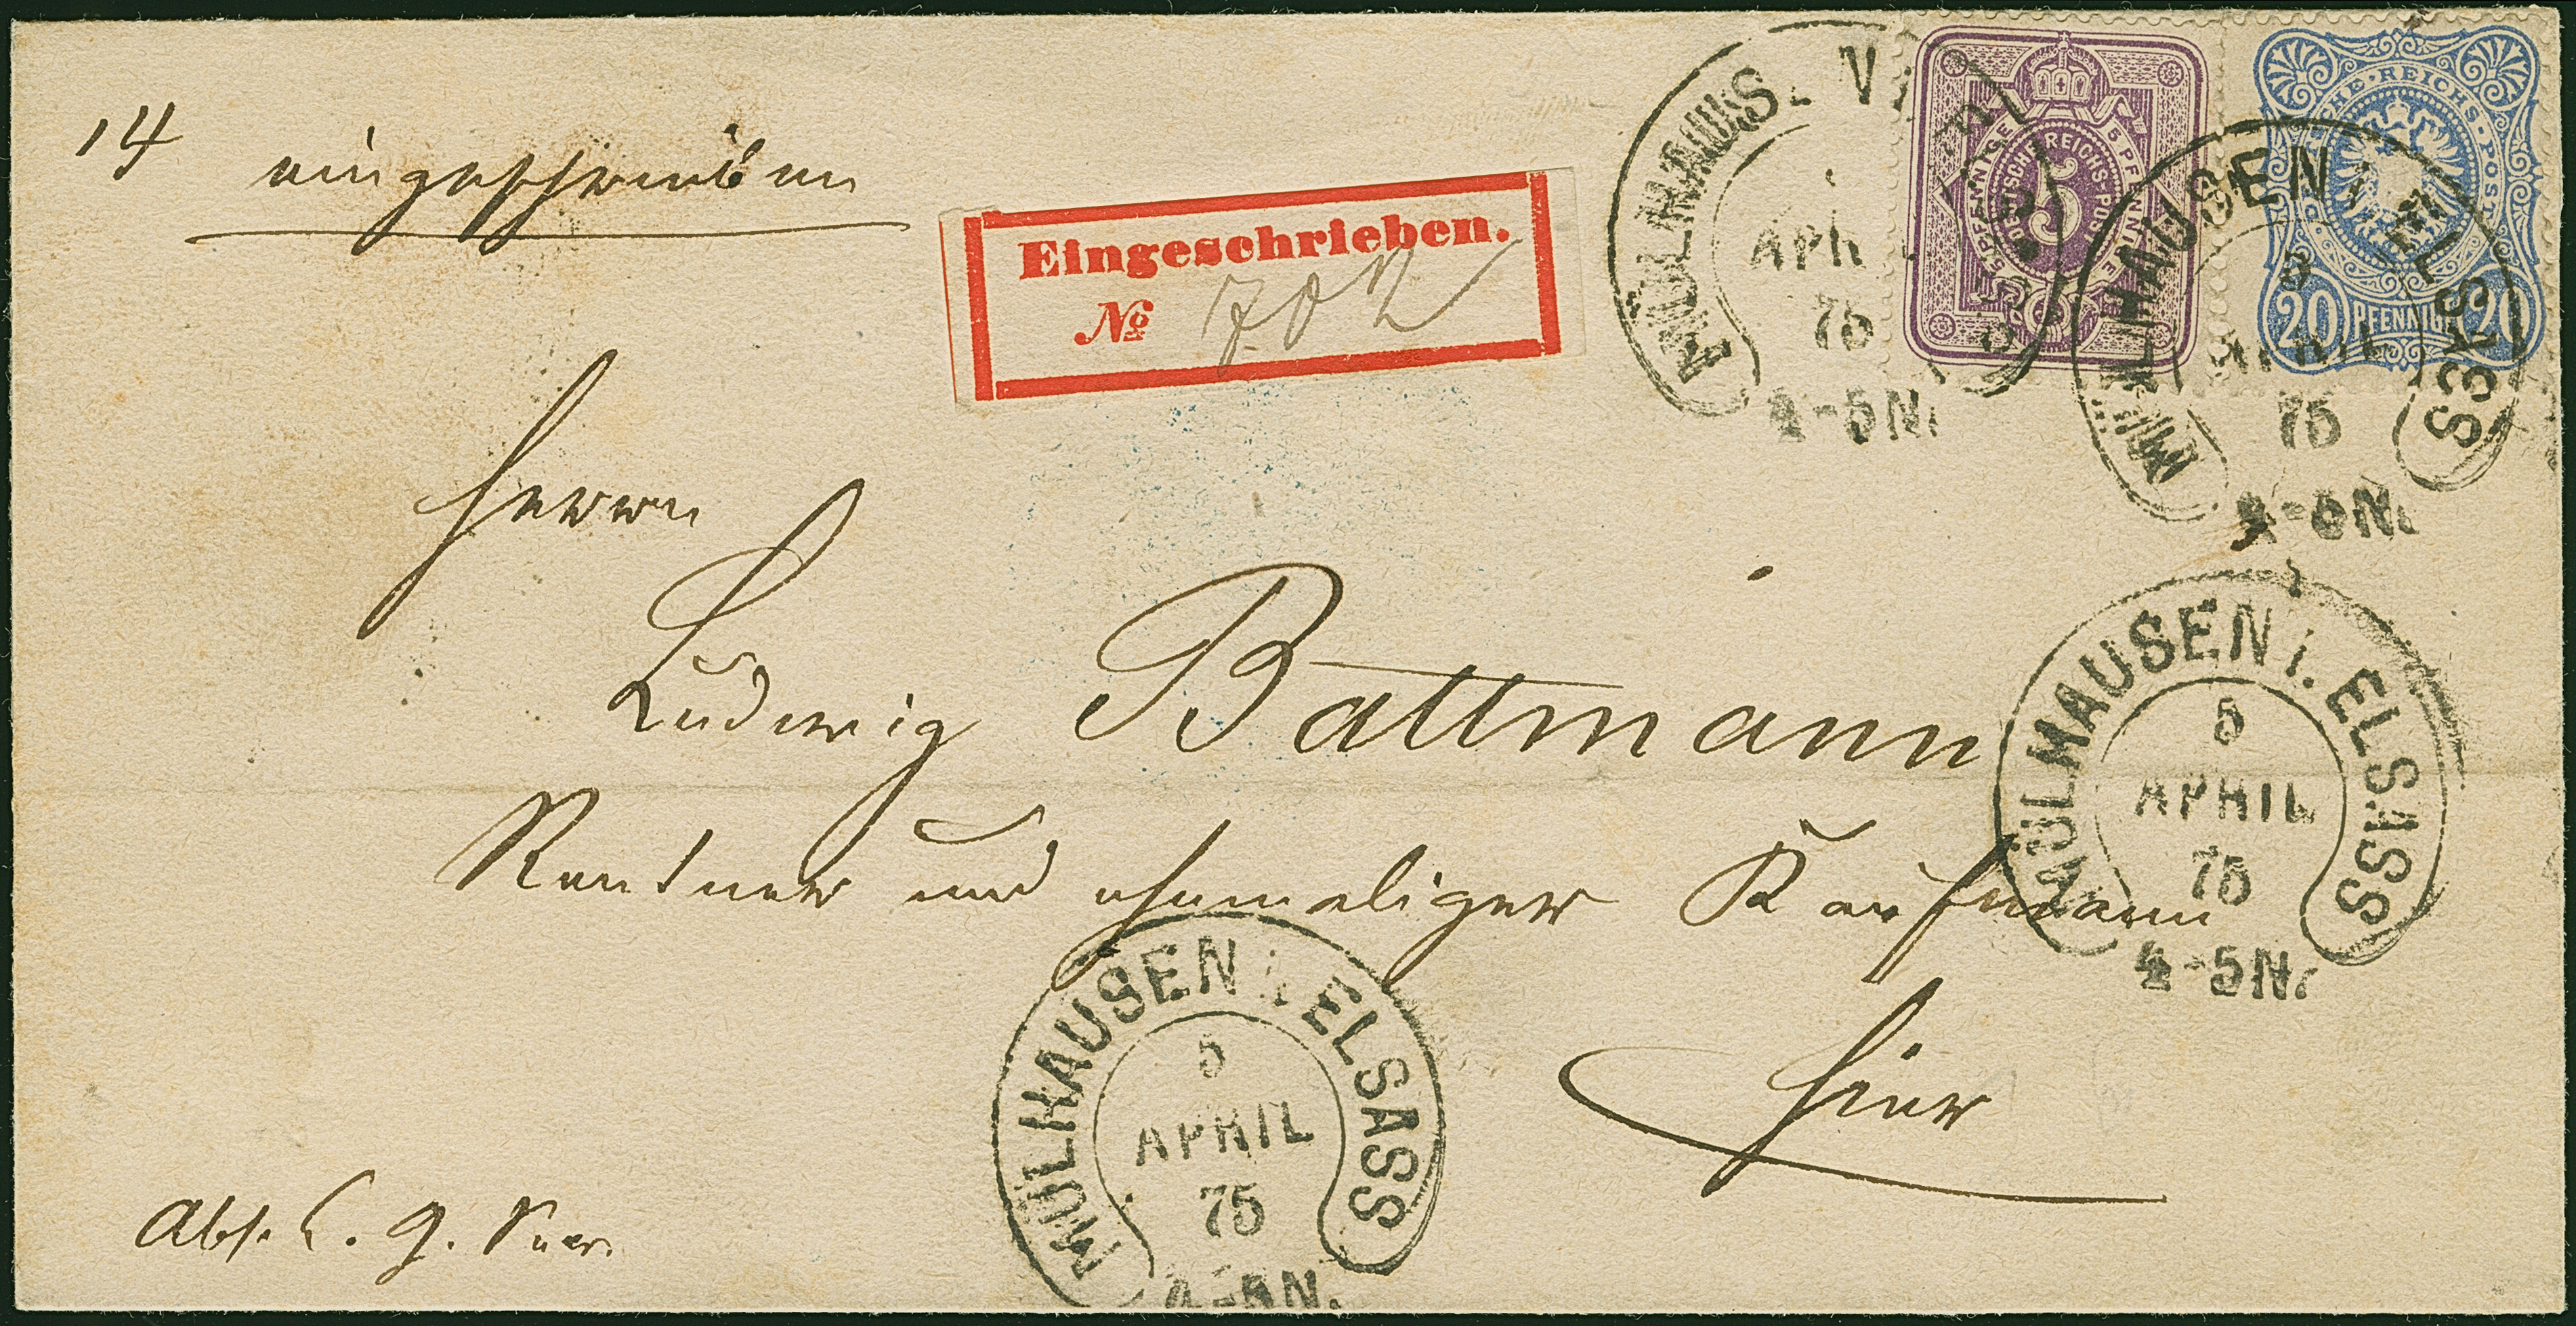 14 eingeschrieben
Eingeschrieben.
№ 702
5 PFENNIGE 5 PFENNIGE
DEUTSCHE REICHS-POST
5
DEUTSCHE·REICHS-POST
20 PFENNIGE 20
MÜLHAUSEN I. ELSASS
APR
75
4-5N.
MÜLHAUSEN I. ELSASS
5
APRIL
75
4-5N.
Herrn
Ludwig Battmann
Rentner und ehemaliger Kaufmann
hier
MÜLHAUSEN I. ELSASS
5
APRIL
75
4-5N.
MÜLHAUSEN I ELSASS
5
APRIL
75
4-5N.
Abs.